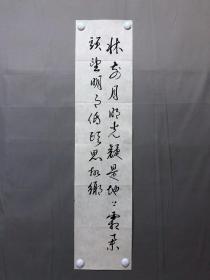 牀前月明光疑是地上霜舉
頭望明月低頭思故鄉